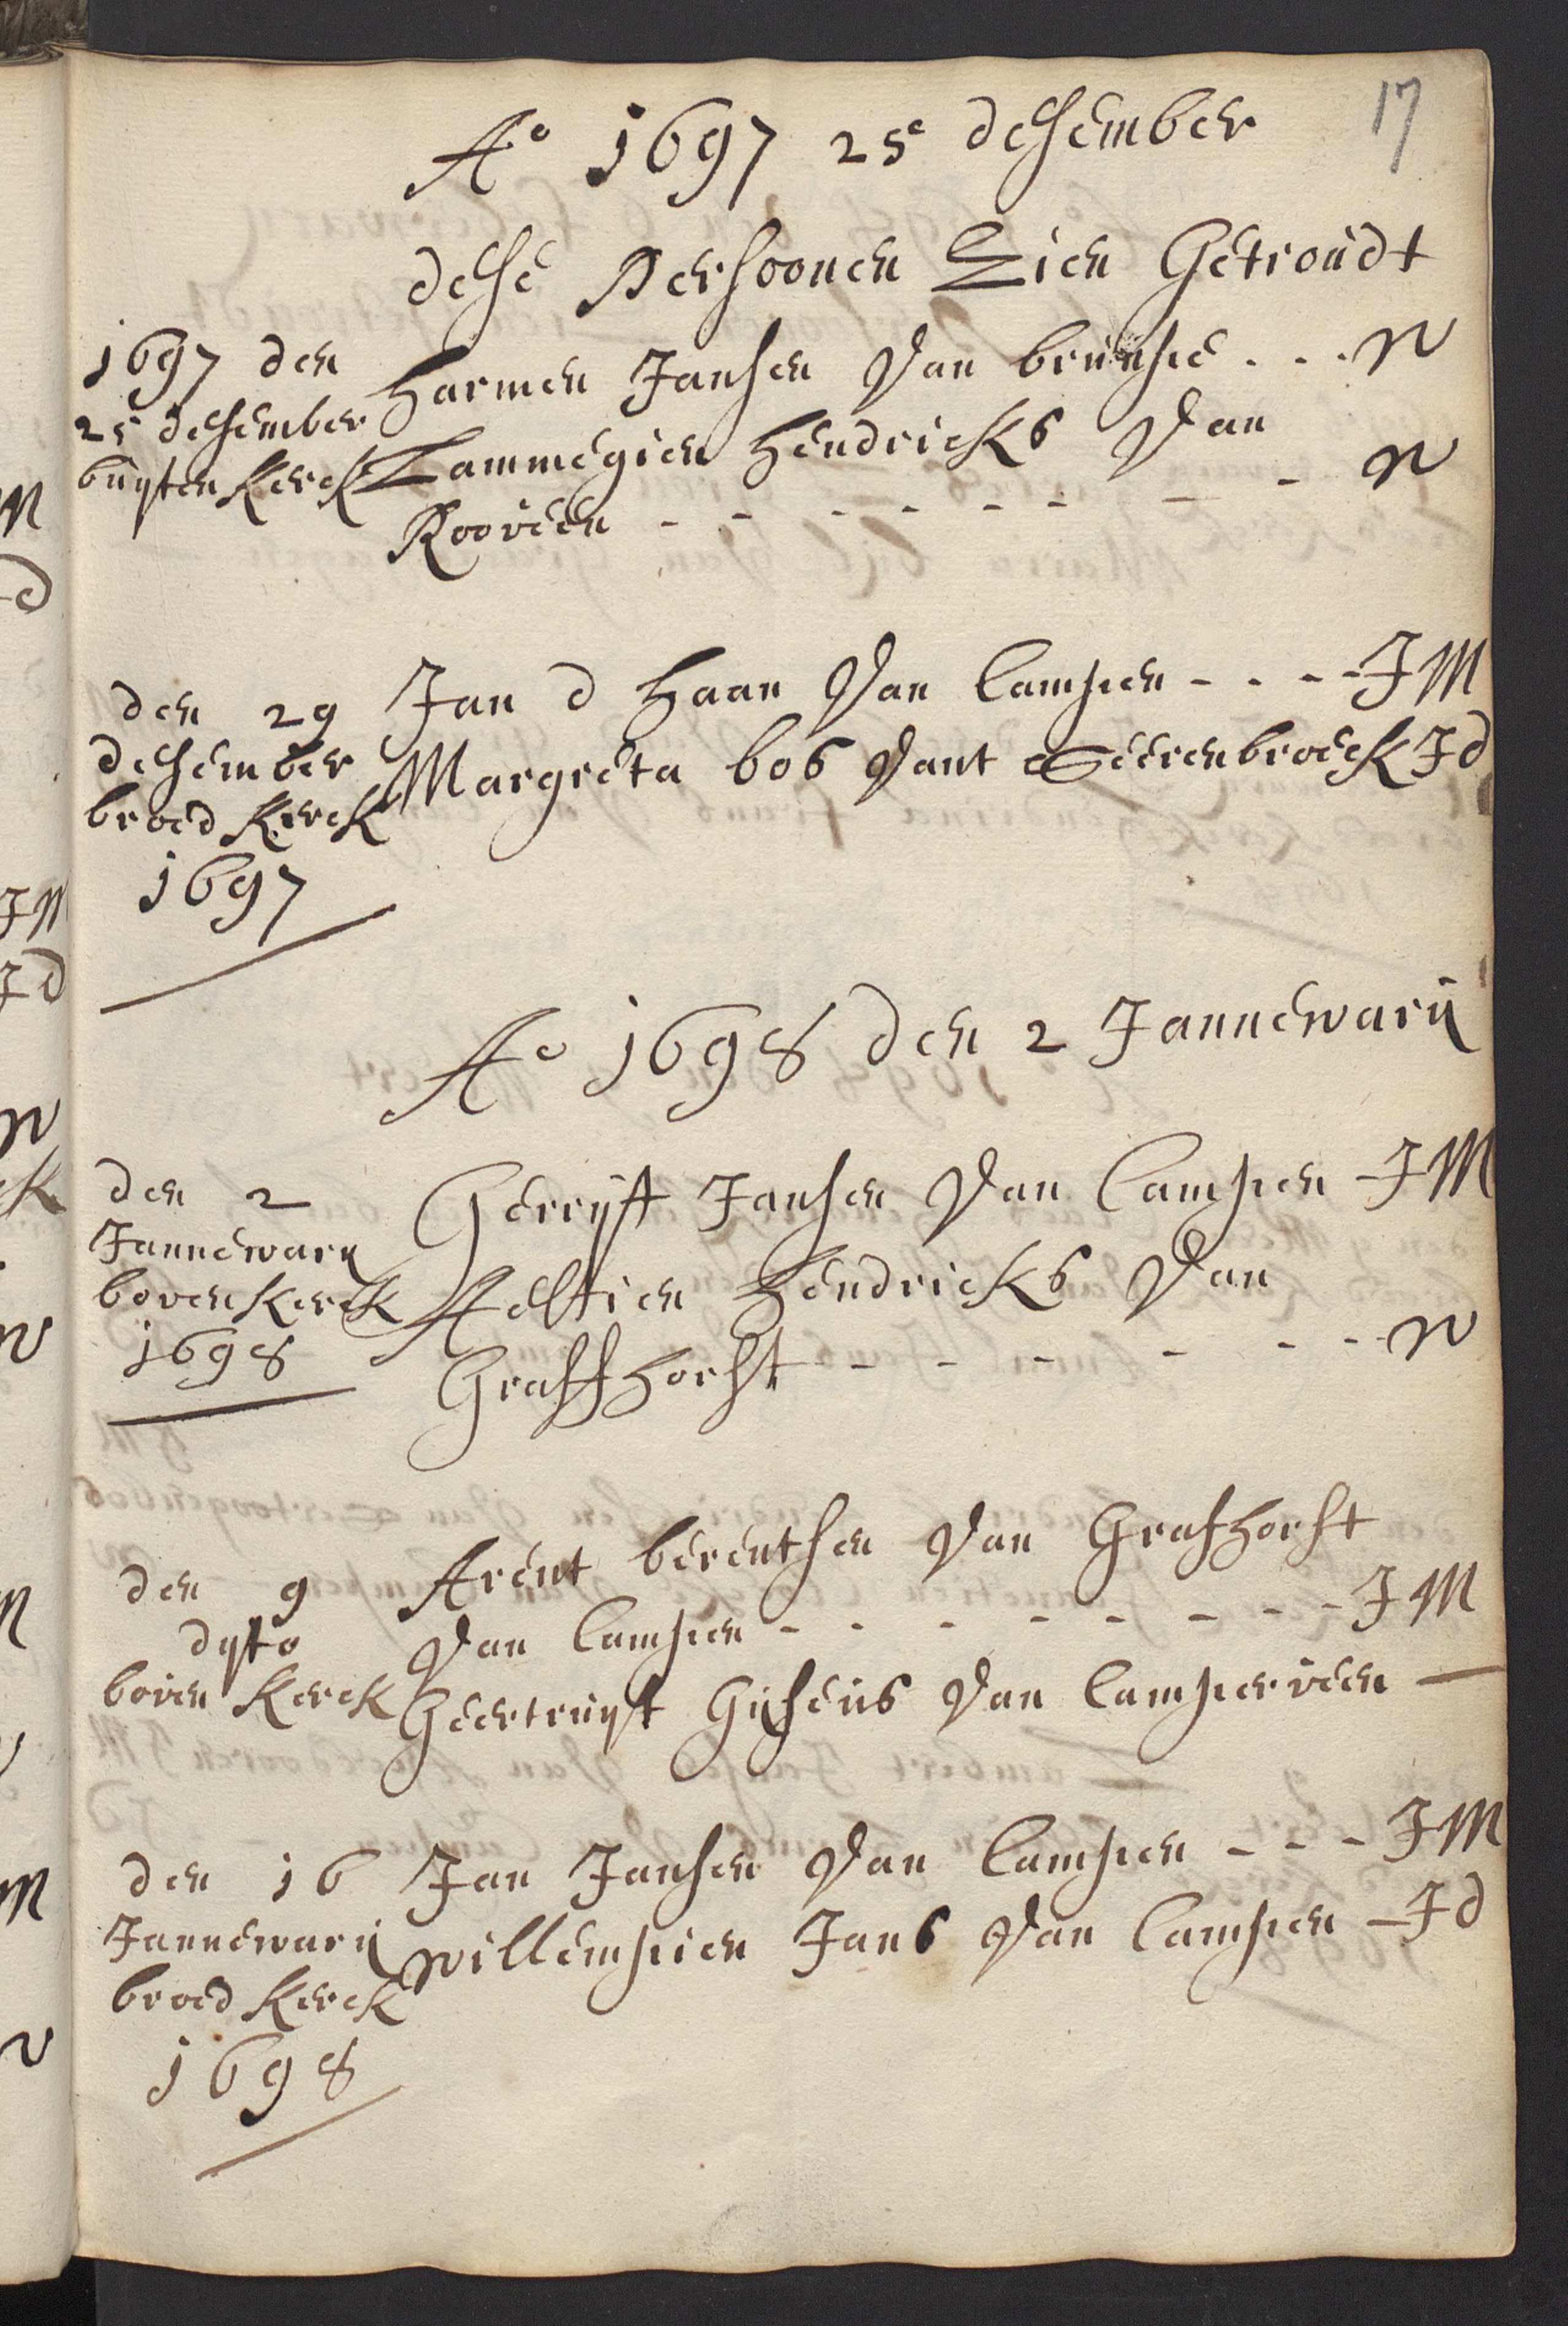 17
Ao 1697 25e desember
dese Persoonen Sien Getroudt
1697 den
25 desember
buyten Kerck
Harmen Jansen Van brunepe . . . W
Lammegien Hendricks Van
Rooveen - - - - - - - - W
den 29
desember
broed Kerck
1697
Jan d Haan Van Campen - - - - JM
Margreta bos Vant Seerenbroeck Jd
Ao 1698 den 2 Jannewarij
den 2
Jannewarij
boven Kerck
1698
Gerryt Jansen Van Campen - JM
Aeltien Hendricks Van
Graffhorst - - - - - - W
den 9
dyto
boven Kerck
Arent berentsen Van Grafhorst
Van Campen - - - - - - - - JM
Geertruyt Gysens Van Camperveen —
den 16
Jannewarij
broed Kerck
1698
Jan Jansen Van Campen - - - JM
Willempien Jans Van Campen - Jd